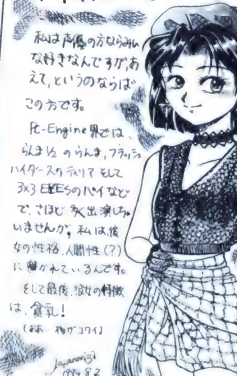 私は声優の方ならみん
な好きなんですが、あ
えて、というのならば
この方です。
Pc-Engine界では、
らんま½のらんま、フラッシュ
ハイダースのティリア そして
3x3 EYESのパイなど
で、さほど 多く出演しちゃ
いませんが、私は、彼
女の性格、人間性(?)
に 惹かれているんです。
そして最後、彼女の特徴
は、貧乳!
(ああ 梅がコワイ)
1994 8.2